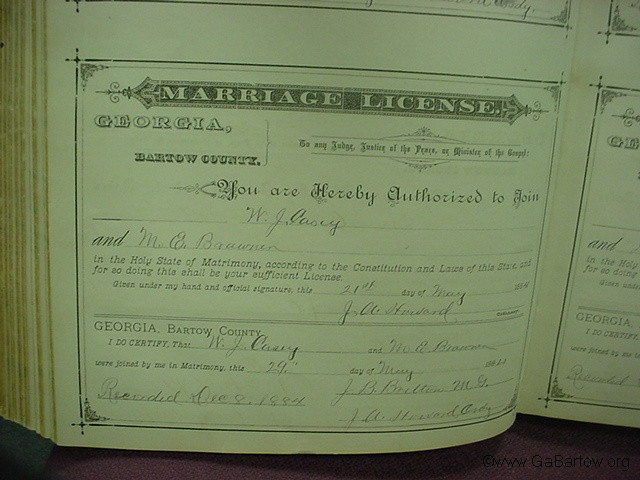 MARRIAGE LICENSE.
GEORGIA,
BARTOW COUNTY.
To any Judge, Justice of the Peace, or Minister of the Gospel:
You are Hereby Authorized to Join
W. J. Casey
and M. E. Brawner
in the Holy State of Matrimony, according to the Constitution and Laws of this State, and
for so doing this shall be your sufficient License.
Given under my hand and official signature, this 21st day of May 1884
J. A. Howard
GEORGIA, BARTOW COUNTY
I DO CERTIFY, That W. J. Casey and M. E. Brawner
were joined by me in Matrimony, this 29" day of May 1884
J. B. Britton M. G.
Recorded Dec 8, 1884
J. A. Howard Ordy
and
in the Holy
for so doing
Given under
GEORGIA
I DO CERTIFY
were joined by me in
Recorded
©www.GaBartow.org